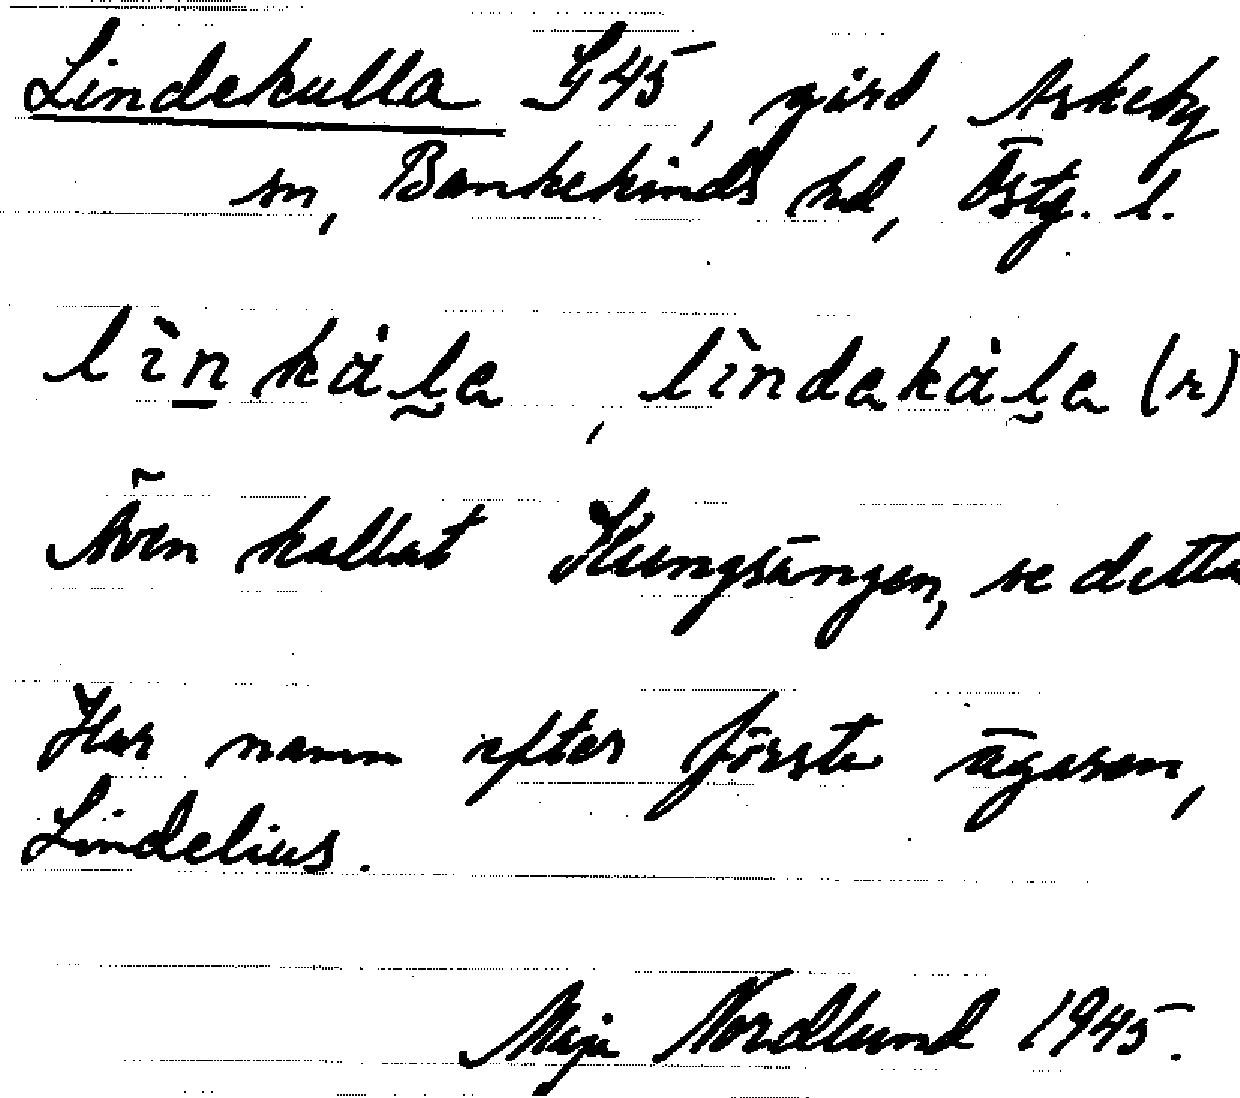 Lindekulla S45, gård, Askeby
sn, Bankekinds hd, Östg. l.
lìnkȧla, lìndakȧla (r)
Även kallat Kungsängen, se detta
Har namn efter förste ägaren,
Lindelius.
Maja Nordlund 1945.